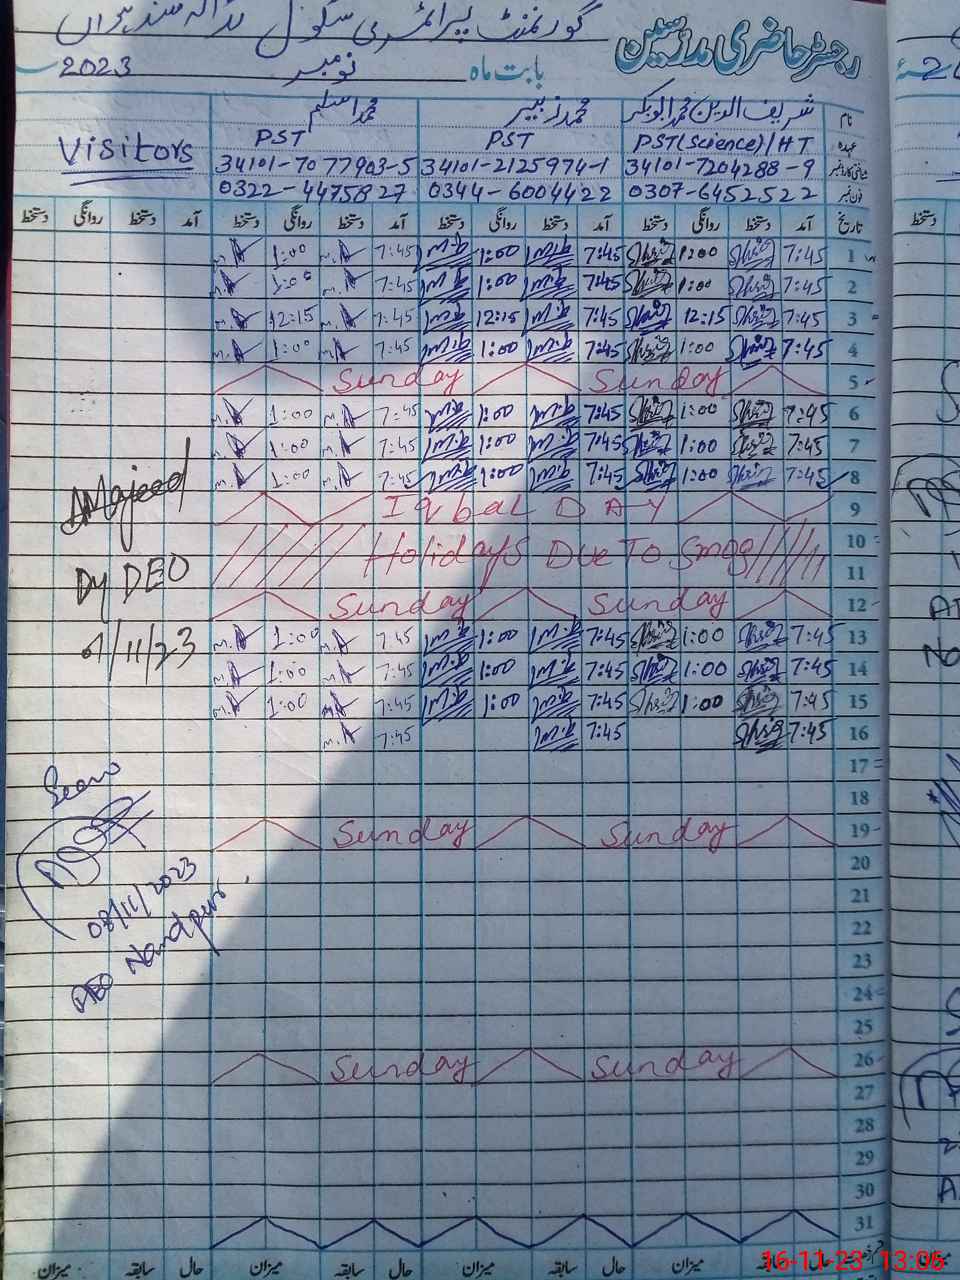 گورنمنٹ پرائمری سکول
رجسٹر حاضری مدرسین
بابت ماہ نومبر 2023
نام شریف الدین محمد ابوبکر محمد زبیر محمد اسلم
عہدہ PST(Science)/HT PST PST
Visitors
34101-7204288-9 34101-2125974-1 34101-7077903-5
فون نمبر 0307-6452522 0344-6004422 0322-4475827
تاریخ آمد دستخط روانگی دستخط آمد دستخط روانگی دستخط آمد دستخط روانگی دستخط آمد دستخط روانگی دستخط
1 7:45 1:00 7:45 M.Z 1:00 M.Z 7:45 M.A 1:00 M.A
2 7:45 1:00 7:45 M.Z 1:00 M.Z 7:45 M.A 1:00 M.A
3 7:45 12:15 7:45 M.Z 12:15 M.Z 7:45 M.A 12:15 M.A
4 7:45 1:00 7:45 M.Z 1:00 M.Z 7:45 M.A 1:00 M.A
5 Sunday Sunday
6 7:45 1:00 7:45 M.Z 1:00 M.Z 7:45 M.A 1:00 M.A
7 7:45 1:00 7:45 M.Z 1:00 M.Z 7:45 M.A 1:00 M.A
8 7:45 1:00 7:45 M.Z 1:00 M.Z 7:45 M.A 1:00 M.A
9 Iqbal DAY
10 Holidays Due To Smog
11
12 Sunday Sunday
13 7:45 1:00 7:45 M.Z 1:00 M.Z 7:45 M.A 1:00 M.A
14 7:45 1:00 7:45 M.Z 1:00 M.Z 7:45 M.A 1:00 M.A
15 7:45 1:00 7:45 M.Z 1:00 M.Z 7:45 M.A 1:00 M.A
16 7:45 7:45 M.Z 7:45 M.A
17
18
19 Sunday Sunday
20
21
22
23
24
25
26 Sunday Sunday
27
28
29
30
31
حال سابقہ میزان حال سابقہ میزان حال سابقہ میزان حال سابقہ میزان
AMajeed
Dy DEO
/11/23
Seen
08/11/2023
AEO Nandpur
16-11-23 13:06